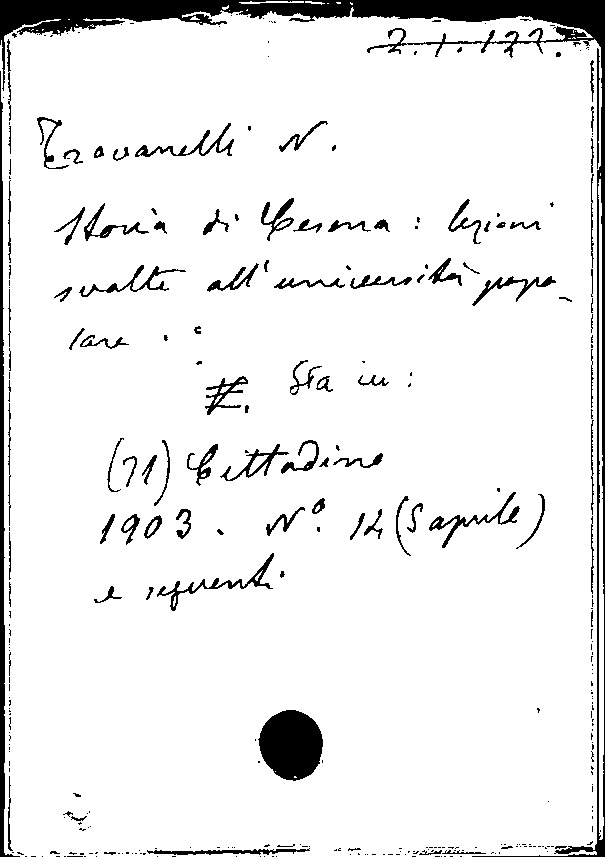 2.1.122.
Trovanelli N.
Storia di Cesena : lezioni
svolte all'università popo-
lare .
Sta in :
(71) Cittadino
1903 . N° 14 (5 aprile)
e seguenti.